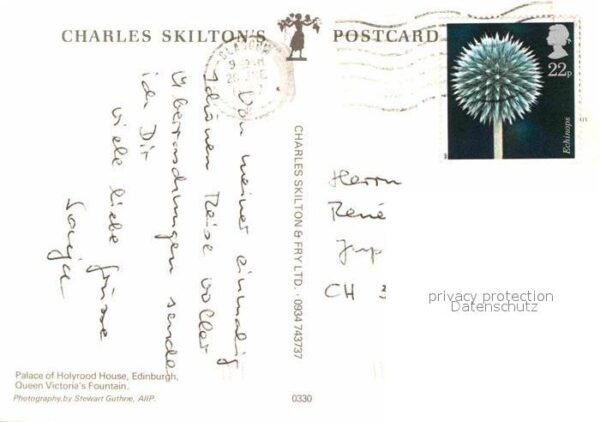 CHARLES SKILTON'S POSTCARD
22P
Echinops
Von meiner einmalig
schönen Reise voller
Überraschungen sende
ich Dir
viele liebe Grüsse
CHARLES SKILTON & FRY LTD. · 0934 743737
Herrn
René
CH 3
privacy protection
Datenschutz
Palace of Holyrood House, Edinburgh,
Queen Victoria's Fountain.
Photography by Stewart Guthrie, AIIP.
0330